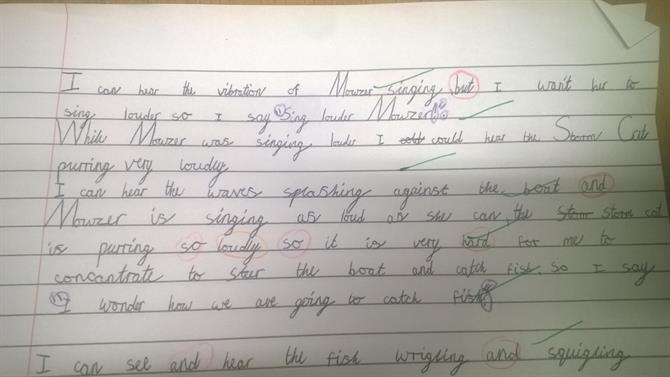 I can hear the vibration of Mowzer singing but I want her to
sing louder so I say "Sing louder Mowzer!"
While Mowzer was singing louder I could hear the Storm Cat
purring very loudly
I can hear the waves splashing against the boat and
Mowzer is singing as loud as she can, the storm cat
is purring so loudly so it is very hard for me to
concantrate to steer the boat and catch fish. so I say
"I wonder how we are going to catch fish"
I can see and hear the fish wrigling and squigling